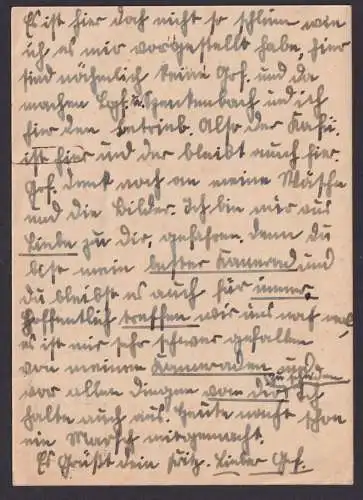 Es ist hier doch nicht so schlim wie
ich es mir vorgestellt habe, hier
sind nähmlich keine Gef. und da
machen Egf. u. Schenkenbach und ich
hier den Betrieb. Also der Kasi.
ist hier und der bleibt auch hier.
Gef. denk noch an meine Wäsche
und die Bilder. Ich bin nur aus
Liebe zu dir, gefahren. denn du
bist mein bester Kamerad und
du bleibst es auch für immer.
Hoffentlich treffen wir uns noch mal,
es ist mir sehr schwer gefallen
von meinen Kameraden und
vor allen dingen von dir zu scheiden Ich
halte auch aus. Heute nacht schon
ein Marsch mitgemacht.
Es Grüßt dein Fritz. Lieber Gef.